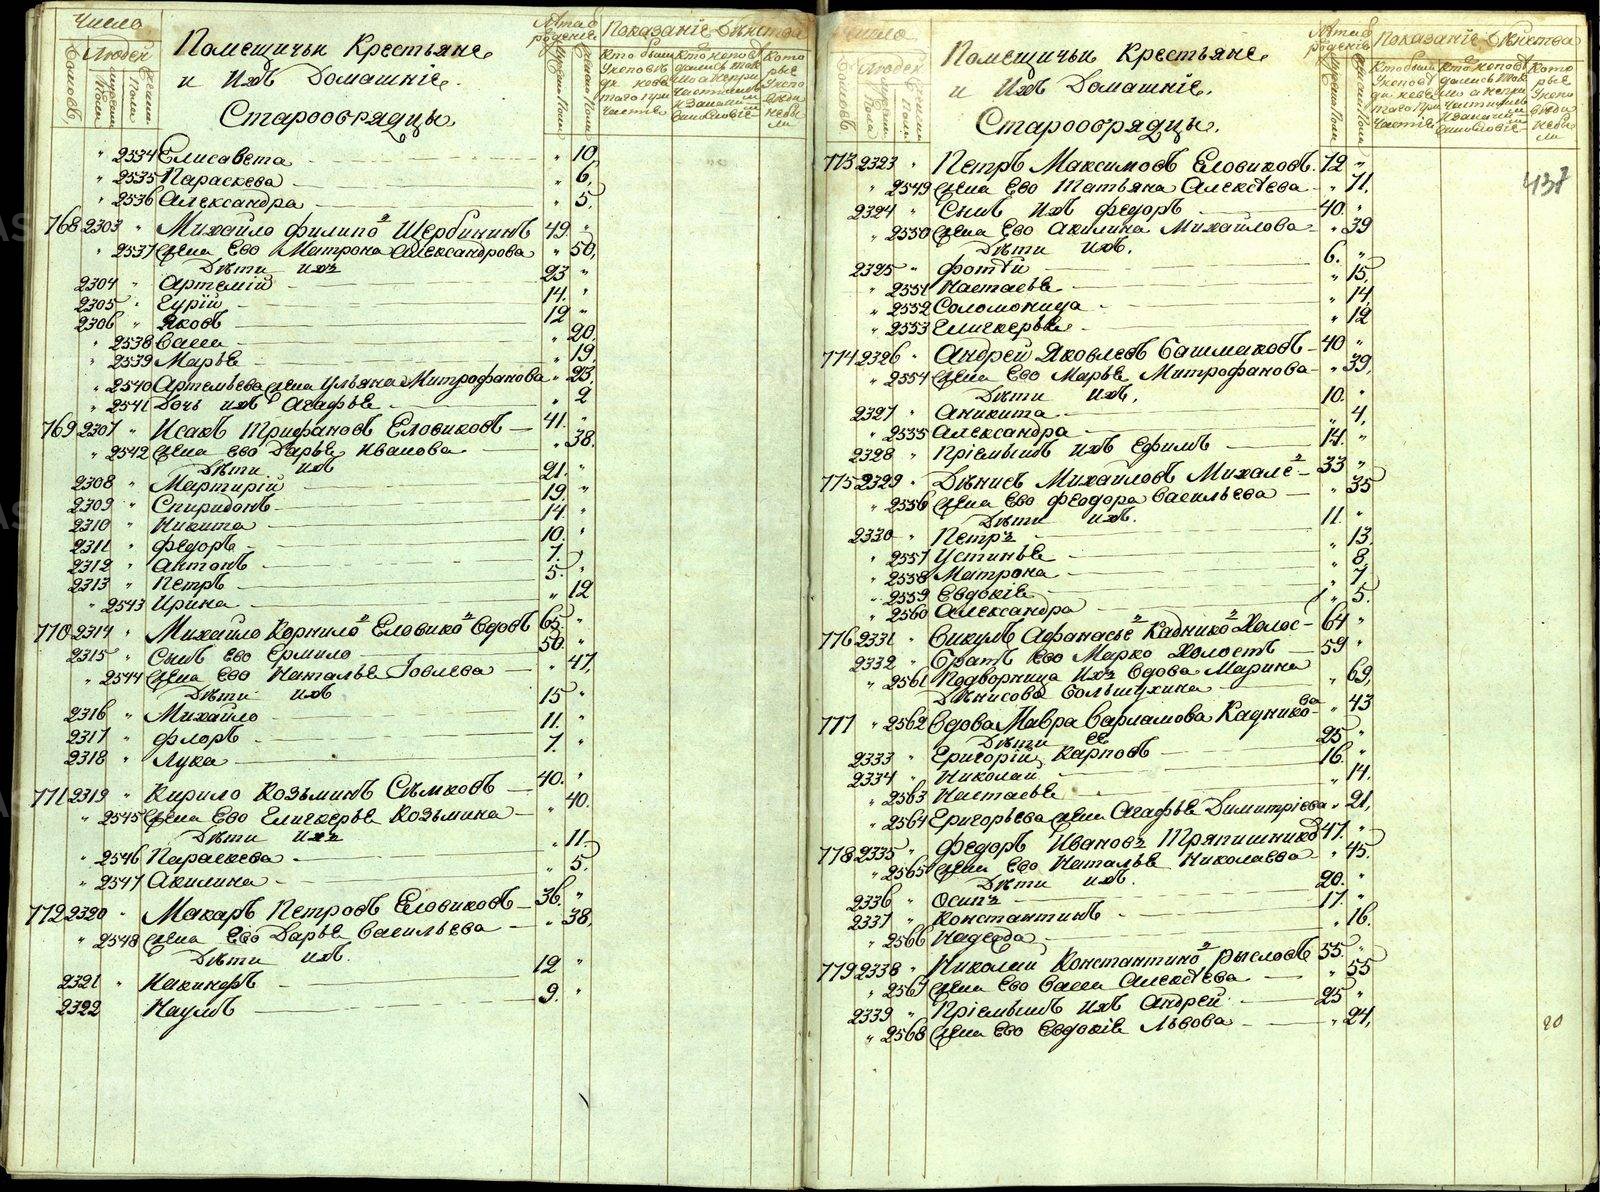 Число
Домовъ
Людей
Мужеска Пола
Женска Пола
Помещичьи Крестьяне
и Ихъ Домашніе.
Старообрядцы
Лѣта Рожденіе
Мужеска Пола
Женска Пола
Показаніе Бытства
" 2534 Елисавета " 10
" 2535 Параскева " 6,
" 2536 Александра " 5.
768 2303 " Михайло Филипо Щербининъ 49 "
" 2537 Жена Ево Матрона Александрова " 50,
Дѣти ихъ
2304 " Артемій 23 "
2305 " Гурій 14. "
2306 " Яковъ 12 "
" 2538 Васса " 20.
" 2539 Марья " 19,
" 2540 Артемьева жена Ульяна Митрофанова " 23,
" 2541 Дочь ихъ Агафья " 2
769 2307 " Исакъ Трифановъ Еловиковъ 41. "
" 2542 Жена Ево Дарья Иванова " 38.
Дѣти ихъ
2308 " Мартирій 21. "
2309 " Спиридонъ 19. "
2310 " Никита 14. "
2311 " Федоръ 10. "
2312 " Антонъ 7. "
2313 " Петръ 5. "
" 2543 Ирина " 12
770 2314 " Михайло Корнило Еловико Вдовъ 65 "
2315 " Сынъ Ево Ермило 50. "
" 2544 Жена Ево Наталья Іовлева " 47,
Дѣти ихъ
2316 " Михайло 15 "
2317 " Флоръ 11. "
2318 " Лука 7. "
771 2319 " Кирило Козьминъ Сѣмковъ 40. "
" 2545 Жена Ево Еликерья Козьмина " 40.
Дѣти ихъ
" 2546 Параскева " 11.
" 2547 Акилина " 5.
772 2320 " Макаръ Петровъ Еловиковъ 36. "
" 2548 Жена Ево Дарья Васильева " 38,
Дѣти ихъ.
2321 " Иакинфъ 12 "
2322 Наумъ 9. "
Число
Домовъ
Людей
Помещичьи Крестьяне
и Ихъ Домашніе.
Старообрядцы.
Лѣта Рожденіе
Показаніе Бытства
437
773 2323 " Петръ Максимовъ Еловиковъ. 72 "
" 2549 Жена Ево Татьяна Алексѣева " 71,
2324 " Сынъ Ихъ Федоръ 40. "
" 2550 Жена Ево Акилина Михайлова " 39
Дѣти ихъ.
2325 " Фотій 6. "
" 2551 Настасья " 15,
" 2552 Соломонида " 14,
" 2553 Еликерья " 12
774 2326 " Андрей Яковлевъ Башмаковъ 40 "
" 2554 Жена Ево Марья Митрофанова " 39,
Дѣти Ихъ.
2327 " Аникита 10. "
" 2555 Александра " 4,
2328 " Пріемышъ ихъ Ефимъ 14. "
775 2329 " Дѣнисъ Михайловъ Михале 33 "
" 2556 Жена Ево Феодора Васильева " 35
Дѣти ихъ.
2330 " Петръ 11. "
" 2557 Устинья " 13,
" 2558 Матрона " 8,
" 2559 Евдокія " 7,
" 2560 Александра " 5.
776 2331 " Викулъ Афанасье Каднико Холос 64 "
2332 " Братъ Ево Марко Холостъ 59 "
" 2561 Подворница Ихъ Вдова Марина
Дѣнисова Большухина " 69,
777 " 2562 Вдова Мавра Варламова Кадникова " 43
Дѣти Ее
2333 " Григорій Карповъ 25 "
2334 " Николай 16. "
" 2563 Настасья " 14.
" 2564 Григорьева жена Агафья Димитріева " 21,
778 2335 " Федоръ Ивановъ Тряпишнико 47. "
" 2565 Жена Ево Наталья Николаева " 45.
Дѣти ихъ.
2336 " Осипъ 20. "
2337 " Константинъ 17. "
" 2566 Надежда " 16.
779 2338 " Николай Константино Рысловъ 55. "
" 2567 Жена Ево Васса Алексѣева " 55
2339 " Пріемышъ ихъ Андрей 25 "
" 2568 Жена Ево Евдокія Львова " 24,
20